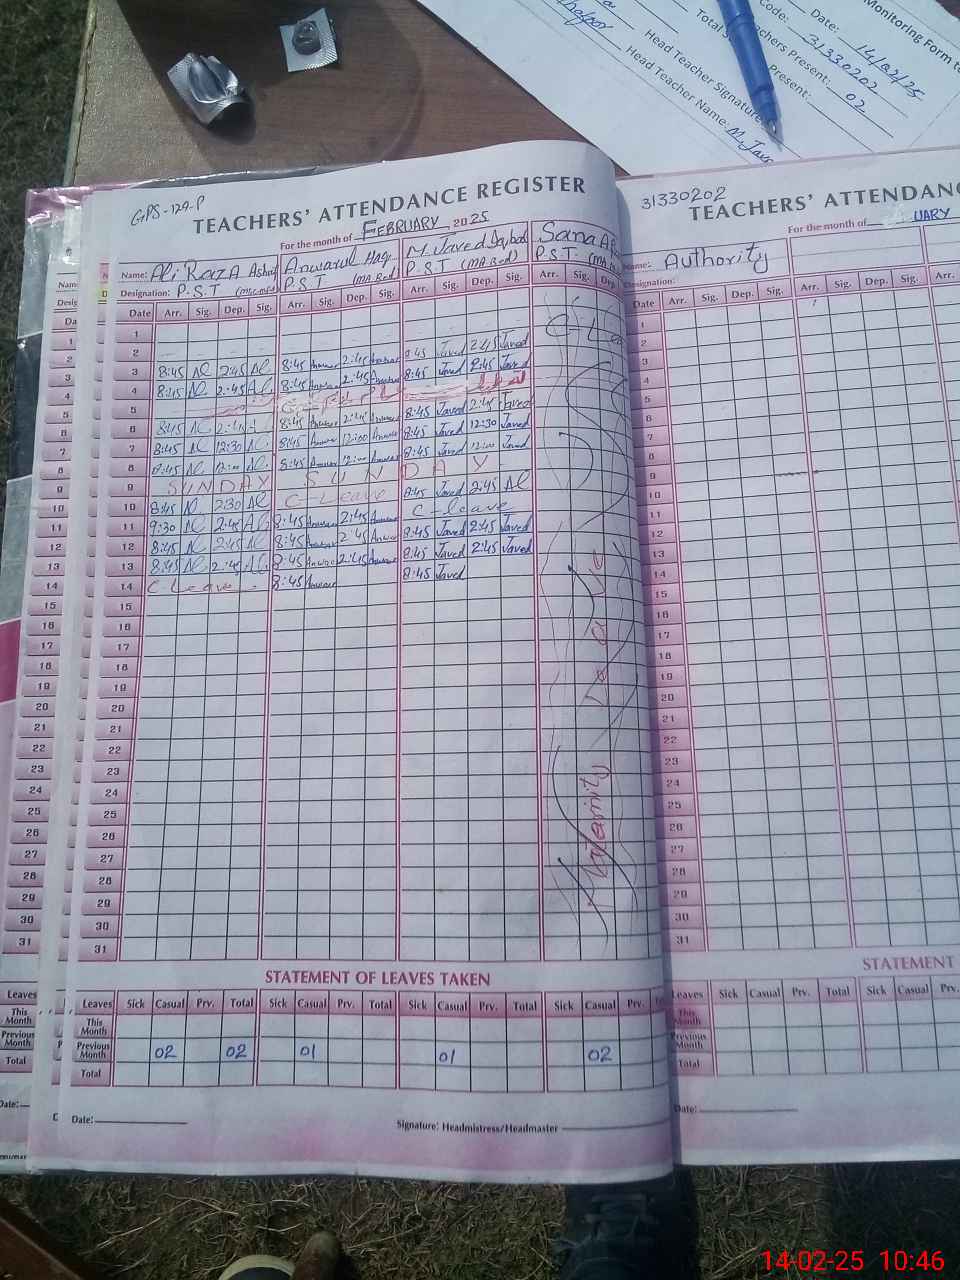 Monitoring Form
Date: 14/02/25
Code: 31330202
Teachers Present: 02
Present:
Head Teacher Signature
Head Teacher Name: M. Jave
GPS-129-P
TEACHERS' ATTENDANCE REGISTER
For the month of FEBRUARY 2025
Name: Ali RazA Anwarul Haq M. Javed Iqbal Sana
Designation: P.S.T P.S.T (MA.B.ed) P.S.T (MA.Bed) P.S.T
Date Arr. Sig. Dep. Sig. Arr. Sig. Dep. Sig. Arr. Sig. Dep. Sig. Arr. Sig. Dep.
1
2
3 8:45 Al 2:45 Al 8:45 Anwar 2:45 Anwar 8:45 Javed 2:45 Javed
4 8:45 Al 2:45 Al 8:45 Anwar 2:45 Anwar 8:45 Javed 2:45 Javed
5
6 8:45 Al 8:45 Anwar 2:45 Anwar 8:45 Javed 2:45 Javed
7 8:45 Al 12:30 Al 8:45 Anwar 12:00 Anwar 8:45 Javed 12:30 Javed
8 8:45 Al 12:00 Al 8:45 Anwar 12:00 Anwar 8:45 Javed 12:00 Javed
9 SUNDAY SUNDAY
10 8:45 Al 2:30 Al C-Leave 8:45 Javed 2:45 Al
11 9:30 Al 2:45 Al 8:45 Anwar 2:45 Anwar C-leave
12 8:45 Al 2:45 Al 8:45 Anwar 2:45 Anwar 8:45 Javed 2:45 Javed
13 8:45 Al 2:45 Al 8:45 Anwar 2:45 Anwar 8:45 Javed 2:45 Javed
14 C-Leave 8:45 Anwar 8:45 Javed
15
16
17
18
19
20
21
22
23
24
25
26
27
28
29
30
31
STATEMENT OF LEAVES TAKEN
Leaves Sick Casual Prv. Total Sick Casual Prv. Total Sick Casual Prv. Total Sick Casual Prv.
This Month
Previous Month 02 02 01 01 02
Total
Date:
Signature: Headmistress/Headmaster
31330202
TEACHERS' ATTENDANC
For the month of UARY
Name: Authority
Designation:
Date Arr. Sig. Dep. Sig. Arr. Sig. Dep. Sig. Arr.
1
2
3
4
5
6
7
8
9
10
11
12
13
14
15
16
17
18
19
20
21
22
23
24
25
26
27
28
29
30
31
STATEMENT
Leaves Sick Casual Prv. Total Sick Casual Prv.
This Month
Previous Month
Total
Date:
14-02-25 10:46